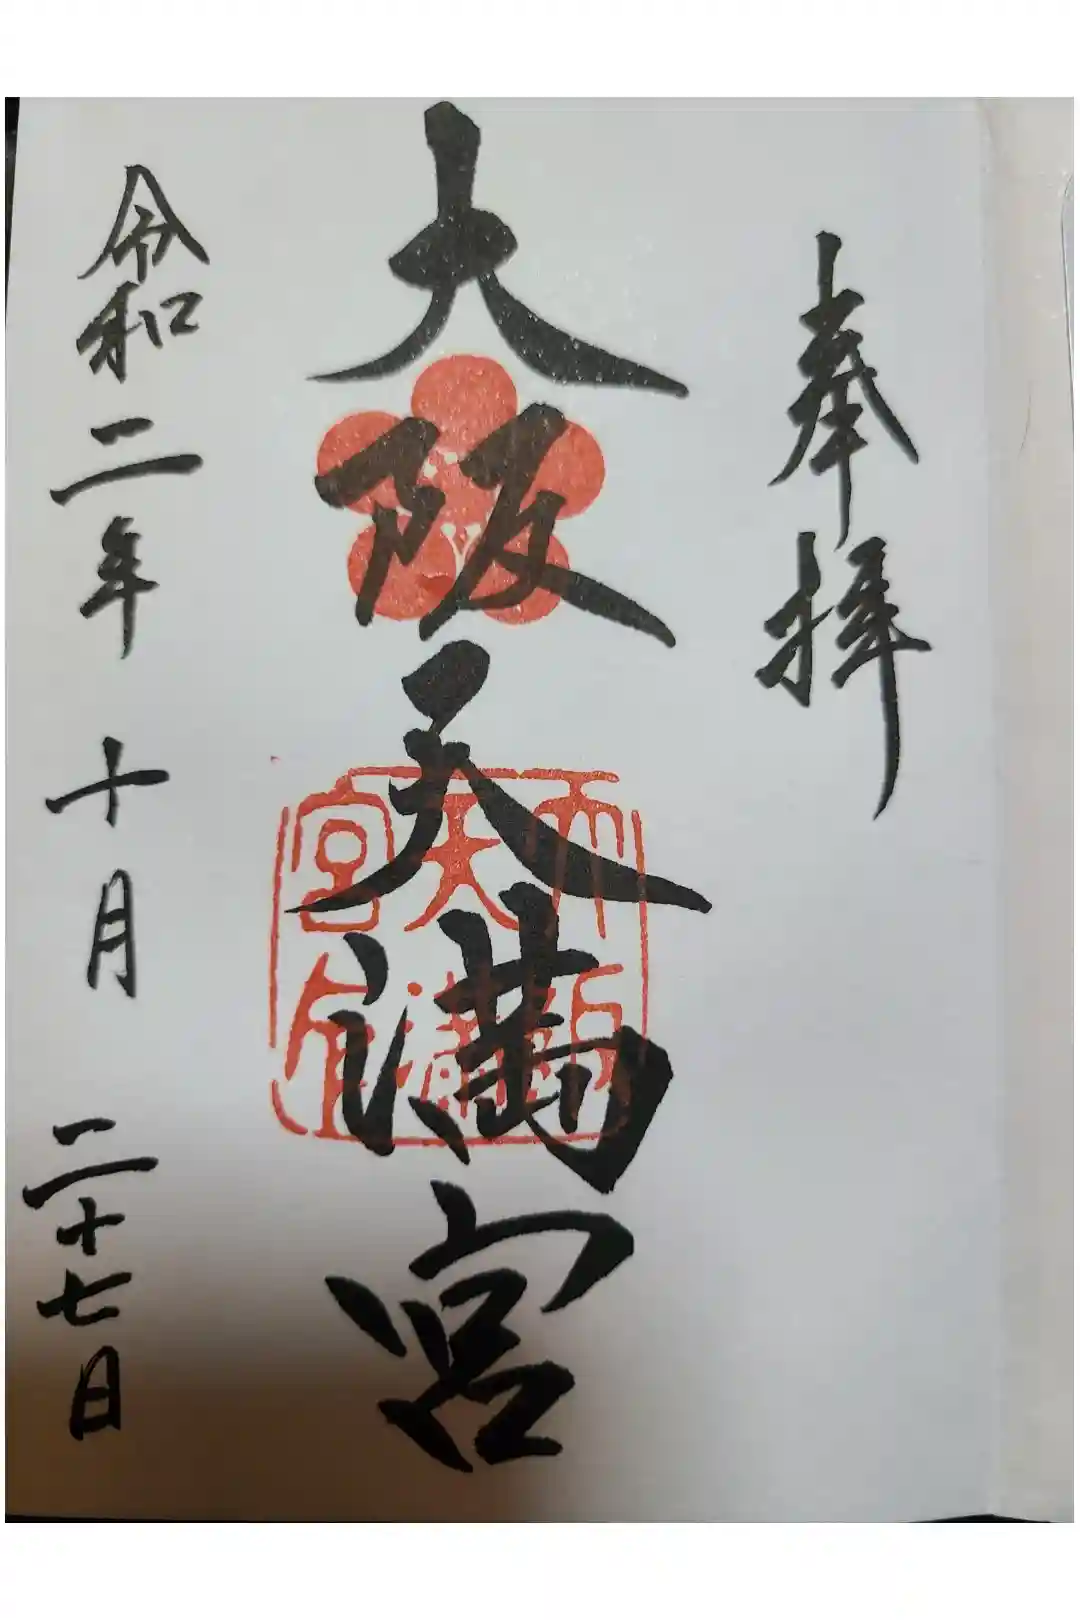 奉拝
大阪天満宮
大阪
天満
宮印
令和二年十月二十七日